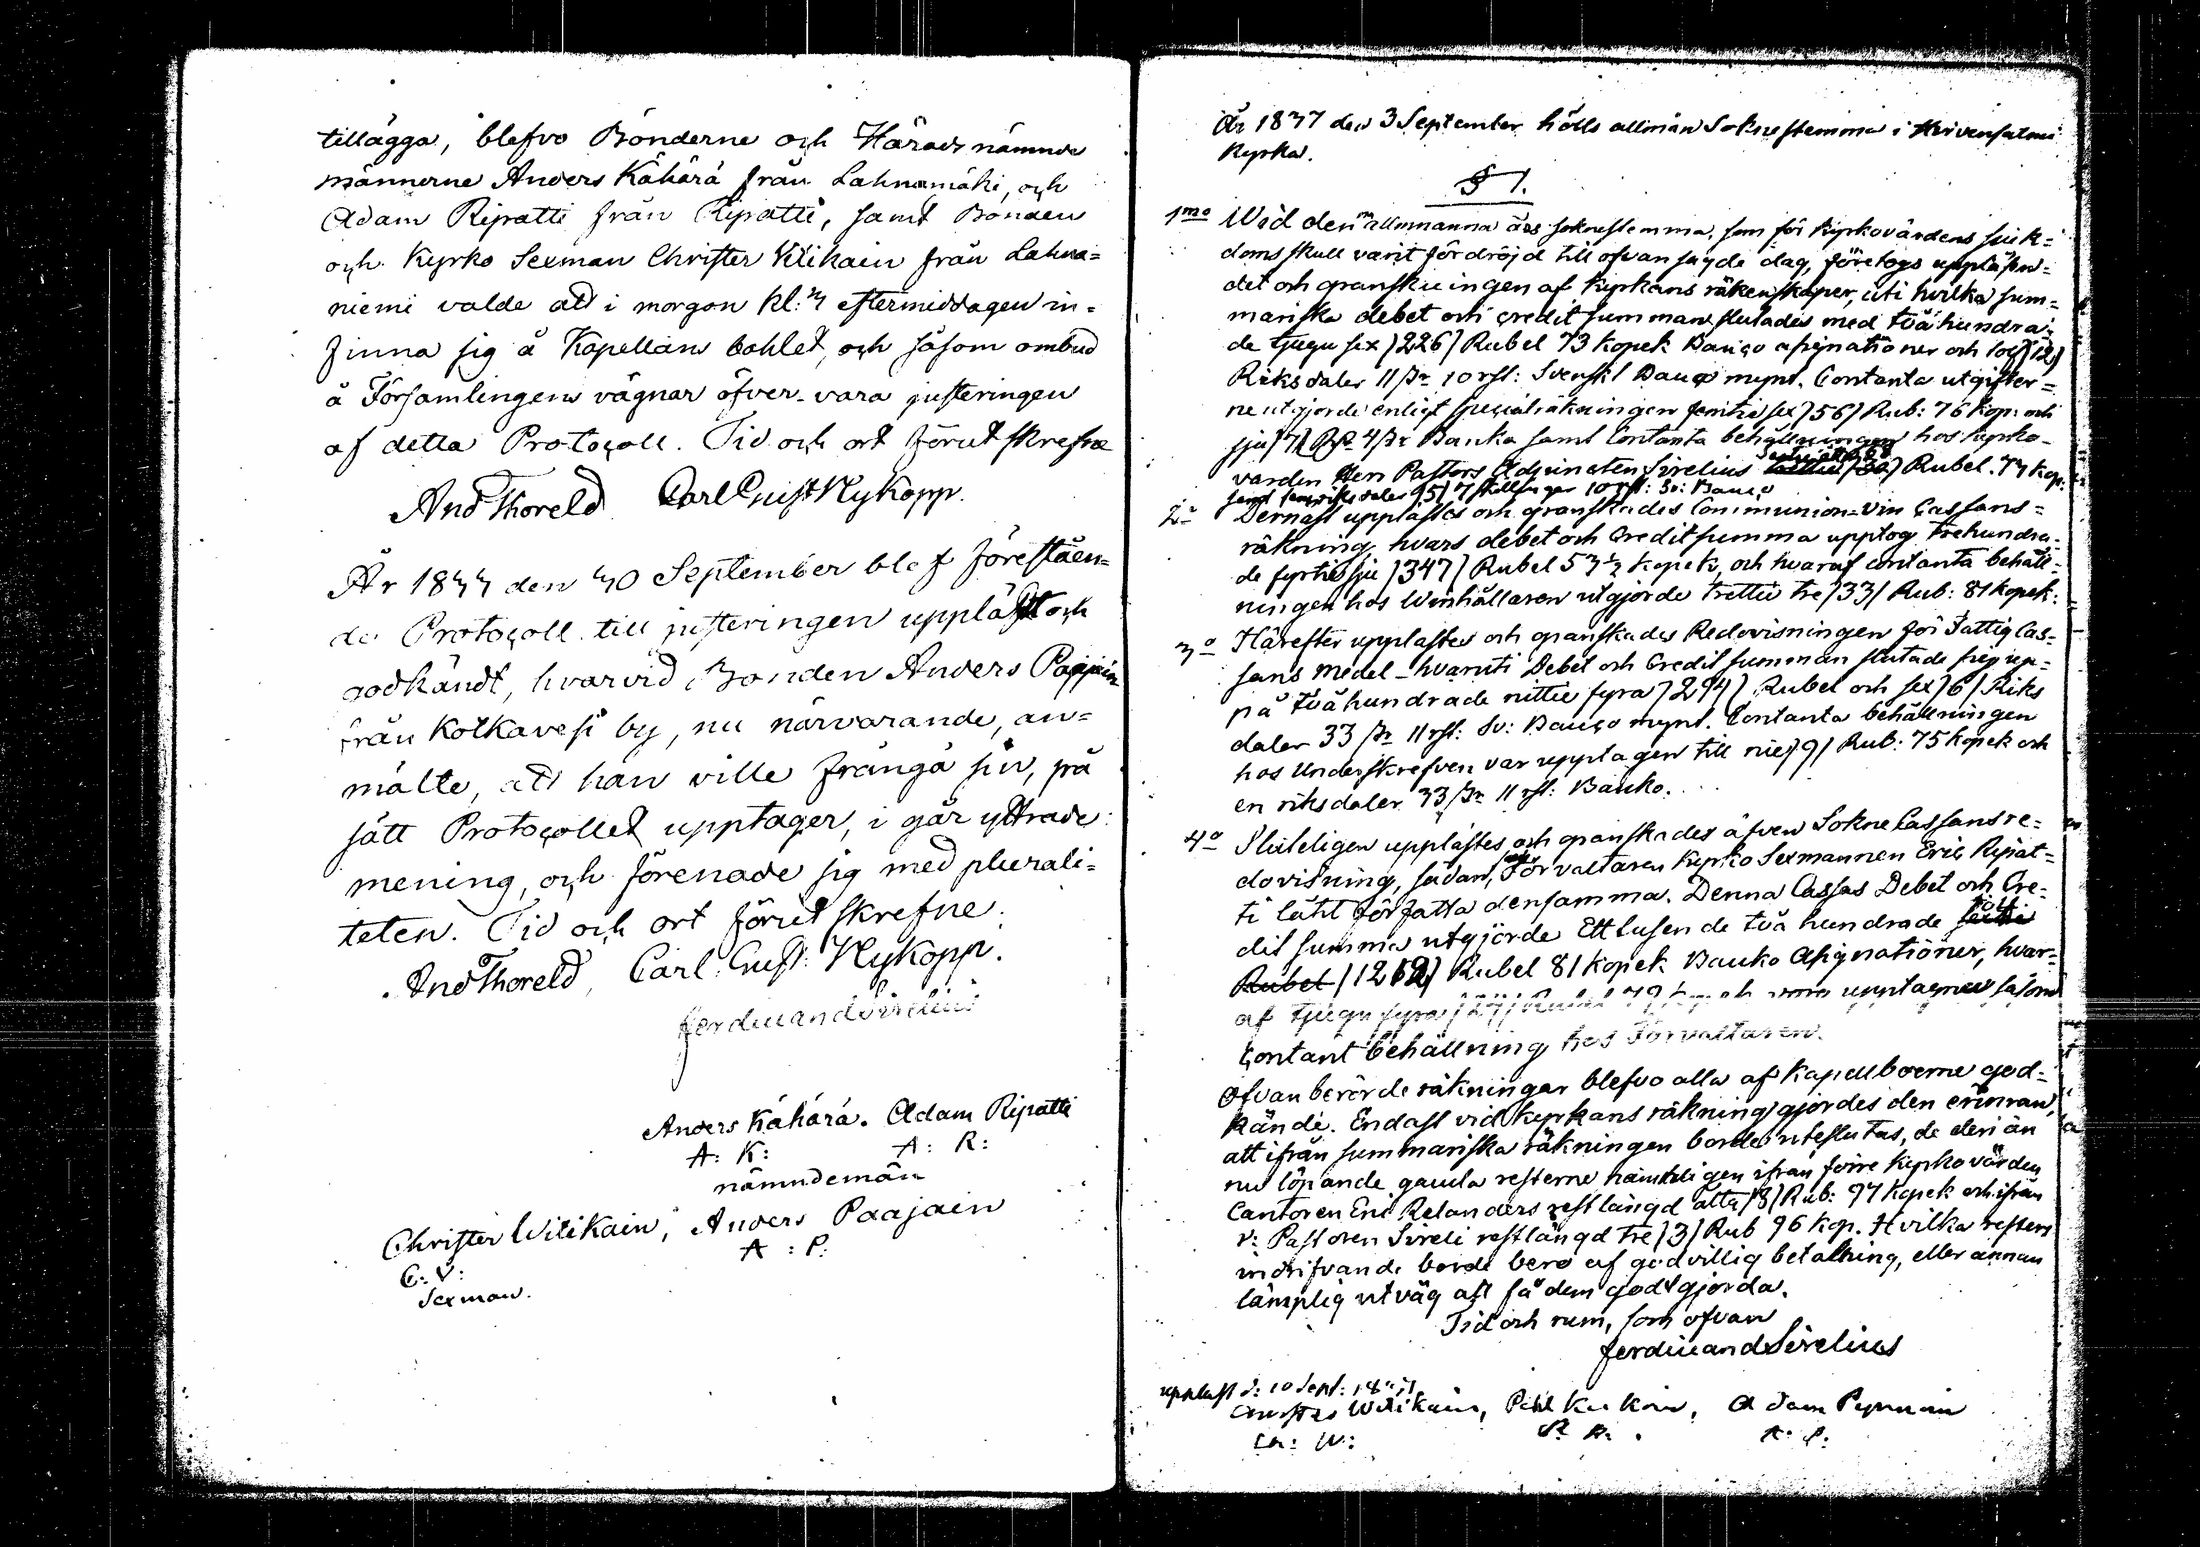 tillägga, blefvo Bönderne och Härads nämnde
männerne Anders Kähärä från Lahnamäki, och
Adam Ripatti från Ripatti, samt Bonden
och Kyrko Sexman Christer Vitikain från Lahna=
niemi valde att i morgon kl: 4 eftermiddagen in=
finna sig å Kapellans bohlet, och såsom ombud
å Församlingens vägnar öfver-vara justeringen
af detta Protocoll. Tid och ort förut skrefne
And Thoreld Carl Gust Nykopp.
År 1844 den 40 September blef föreståen=
de Protocoll till justeringen uppläst och
godkändt, hvarvid Bonden Anders Paajain
från Kolkavesi by, nu närvarande, an=
mälte, att han ville frångå sin, på
sätt Protocollet upptager, i går yttrade
mening, och förenade sig med plurali=
teten. Tid och ort förut skrefne.
And Thoreld, Carl Gust: Nykopp.
Ferdinand Sirelius
Anders Kähärä. Adam Ripatti
A: K: A: R:
nämndemän
Christer Witikain, Anders Paajain
C: V: A: P:
Sexman.
År 1847 den 3 September hölls allmän Soknestemma i Hirvensalmi
Kyrka.
§ 1.
1mo Wid den allmänna års soknestemma, som för Kyrkovärdens sjuk=
doms skull varit fördröjd till ofvansagde dag, företogs uppläsan=
det och granskningen af Kyrkans räkenskaper, uti hvilka sum=
mariska debet och credit summan slutades med tvåhundra=
de tjugu sex /226/ Rubel 73 kopek Banco assignationer och tolf /12/
Riksdaler 11 sk 10 rst: Svenskt Banco mynt. Contanta utgifter=
ne utgjorde enligt specialräkningen femtio sex /56/ Rub: 76 Kop: och
sju /7/ Rd 4 sk Banko samt Contanta behållningen hos kyrko-
värden Herr Pastors Adjuncten Sirelius Rubel 74 kop:
samt fem riksdaler /5/ 7 skillingar 10 rst: Sv: Banco
2o Dernäst upplästes och granskades Communion-Vin Cassans=
räkning, hvars debet och Credit summa upptog trehundra=
de fyrtiosju /347/ Rubel 57½ kopek, och hvaraf contanta behåll=
ningen hos Winhållaren utgjorde trettio tre /33/ Rub: 81 kopek:
3o Härefter upplästes och granskades Redovisningen för Fattig Cas=
sans Medel - hvaruti Debet och Credit summan slutade sig up=
på tvåhundrade nittio fyra /294/ Rubel och sex /6/ Riks
daler 33 sk 11 rst: Sv: Banco mynt. Contanta behållningen
hos Underskrefven var upptagen till nie /9/ Rub: 75 kopek och
en riksdaler 33 sk 11 rst: Banko.
4o Sluteligen upplästes och granskades äfven Sokne Cassans re=
dovisning, sådan, Förvaltaren Kyrko Sexmannen Eric Ripat=
ti låtit författa densamma. Denna Cassas Debet och Cre=
dit summa utgjorde Ett tusende två hundrade tolf
Rubel /1212/ Rubel 81 kopek Banko Assignationer, hvar=
af tjugu fyra /24/ Rubel kopek voro upptagne såsom
Contant behållning hos Förvaltaren.
Ofvanberörde räkningar blefvo alla af Kapellboerne god=
kände. Endast vid Kyrkans räkning gjordes den erinran,
att ifrån summariska räkningen borde uteslutas, de deri än
nu löpande gamla resterne nämnligen ifrån förre Kyrkovärden
Cantoren Eric Relanders restlängd åtta /8/ Rub: 97 Kopek och ifrån
V: Pastoren Sireli restlängd tre /3/ Rub 96 kop. Hvilka resters
indrifvande borde bero af godvillig betalning, eller annan
lämplig utväg att få dem godtgjorda.
Tid och rum, som ofvan
Ferdinand Sirelius
uppläst d: 10 Sept: 1847.
Christer Witikain, Påhl Kuckoin, Adam Pynnöin
Ch: W: P. K. A: P: